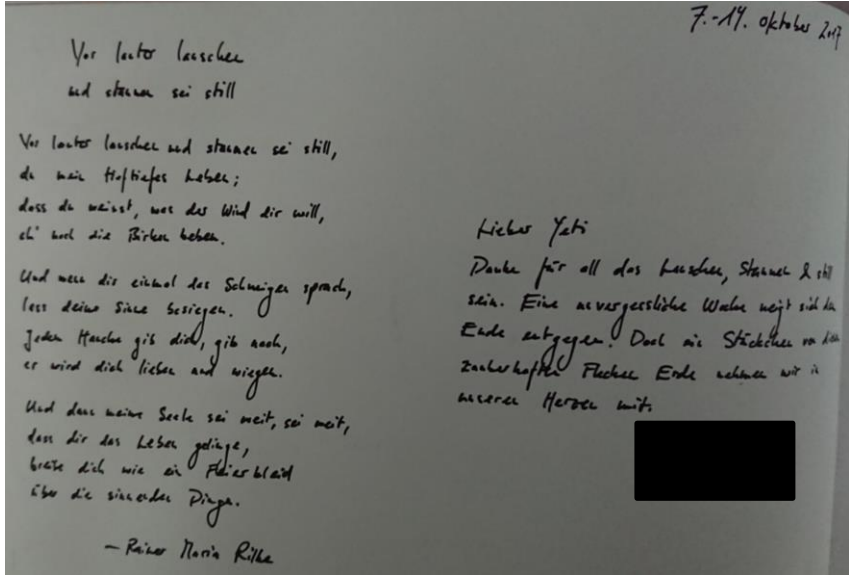 7.-14. Oktober 2017
Vor lauter lauschen
und staunen sei still
Vor lauter lauschen und staunen sei still,
du mein tieftiefes Leben;
dass du weisst, was der Wind dir will,
eh' noch die Birken beben.
Und wenn dir einmal das Schweigen sprach,
lass deine Sinne besiegen.
Jedem Hauche gib dich, gib nach,
er wird dich lieben und wiegen.
Und dann meine Seele sei weit, sei weit,
dass dir das Leben gelinge,
breite dich wie ein Feierkleid
über die sinnenden Dinge.
– Rainer Maria Rilke
Lieber Yeti
Danke für all das Lauschen, Staunen & still
sein. Eine unvergessliche Woche neigt sich dem
Ende entgegen. Doch ein Stückchen von diesem
zauberhaften Flecken Erde nehmen wir in
unseren Herzen mit.